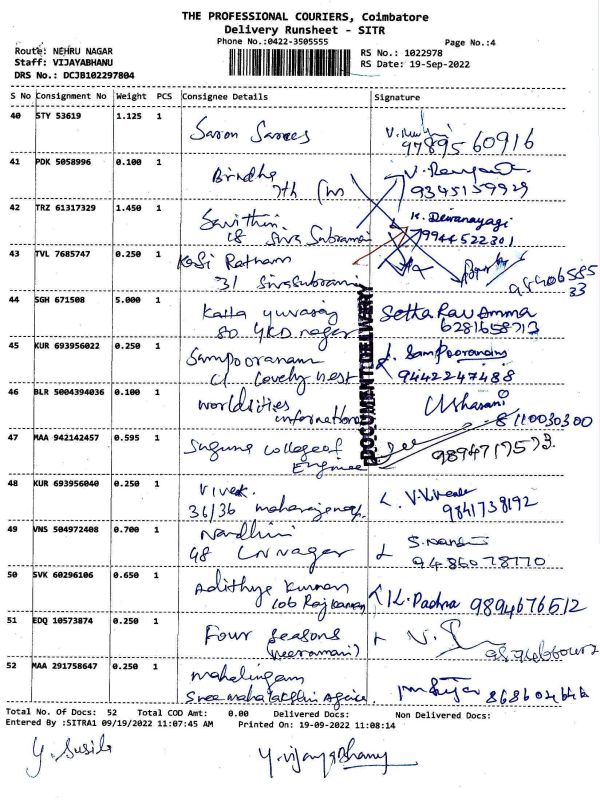 THE PROFESSIONAL COURIERS, Coimbatore
Delivery Runsheet - SITR
Phone No.:0422-3505555
Page No.:4
Route: NEHRU NAGAR
Staff: VIJAYABHANU
DRS No.: DCJB102297804
RS No.: 1022978
RS Date: 19-Sep-2022
S No Consignment No Weight PCS Consignee Details Signature
40 STY 53619 1.125 1 Saron Sarees
97895 60916
41 PDK 5058996 0.100 1 Brindha
7th
9345159929
42 TRZ 61317329 1.450 1 Savithri K. Deivanayagi
18 Siva Subramani 7994452230 1
43 TVL 7685747 0.250 1 Kasi Ratnam
31 Sivasubrami
44 SGH 671508 5.000 1 Katta yuvaraj Setta Rav Amma
80 YKD nagar 6281658713
45 KUR 693956022 0.250 1 Sampooranam Sampooranam
C1 Lovely nest 9442247488
46 BLR 5004394036 0.100 1 worldsities
information 8110030300
DOCUMENT DELIVERY
47 MAA 942142457 0.595 1 Suguna College of
Enginee 9894717573.
48 KUR 693956040 0.250 1 Vivek. V. Viveak
36/36 maharaja nag. 9841738192
49 VNS 504972408 0.700 1 Nandhini S. Nandhi
48 LN nagar 9486078770
50 SVK 60296106 0.650 1 Adithya Kumar
106 Raj K. Padma 9894676512
51 EDQ 10573874 0.250 1 Four Seasons
(veeramani)
52 MAA 291758647 0.250 1 mahalingam
Sree mahalakshmi Agencie
Total No. Of Docs: 52 Total COD Amt: 0.00 Delivered Docs: Non Delivered Docs:
Entered By :SITRA1 09/19/2022 11:07:45 AM Printed On: 19-09-2022 11:08:14
Y. Susila
Y. vijaya Bhany